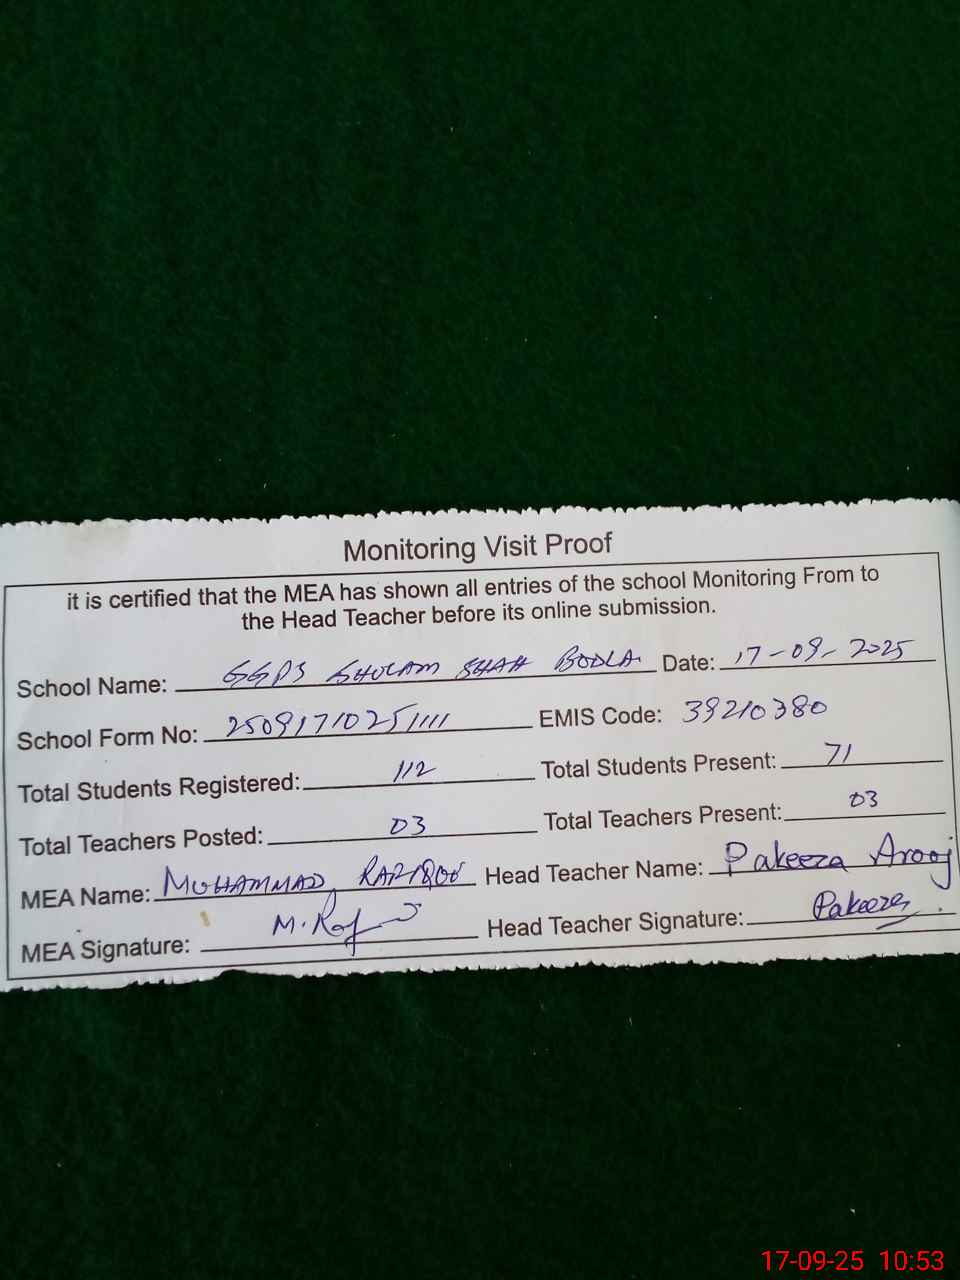 Monitoring Visit Proof
it is certified that the MEA has shown all entries of the school Monitoring From to
the Head Teacher before its online submission.
School Name: GGPS GHULAM SHAH BODLA Date: 17-09-2025
School Form No: 25091710251111 EMIS Code: 39210380
Total Students Registered: 112 Total Students Present: 71
Total Teachers Posted: 03 Total Teachers Present: 03
MEA Name: MUHAMMAD Head Teacher Name: Pakeeza Arooj
MEA Signature: M. Head Teacher Signature: Pakeeza
17-09-25 10:53